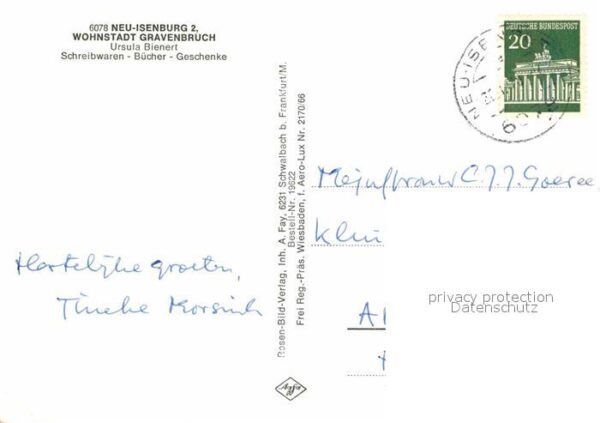 6078 NEU-ISENBURG 2,
WOHNSTADT GRAVENBRUCH
Ursula Bienert
Schreibwaren - Bücher - Geschenke
DEUTSCHE BUNDESPOST
20
NEU-ISE
Rosen-Bild-Verlag, Inh. A. Fay, 6231 Schwalbach b. Frankfurt/M.
Bestell-Nr. 19622
Frei Reg.-Präs. Wiesbaden, f. Aero-Lux Nr. 2170/66
Mejuffrouw C.J.J. Goeree
Hartelijke groeten,
Tineke
privacy protection
Datenschutz
Agfa